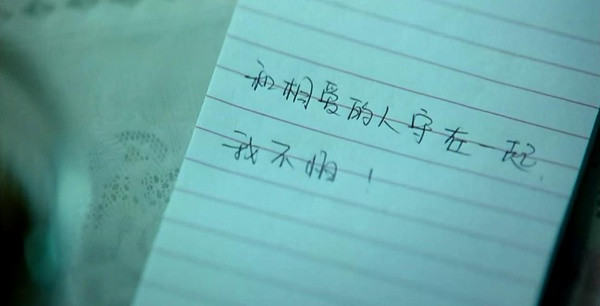 和相爱的人守在一起，
我不怕！